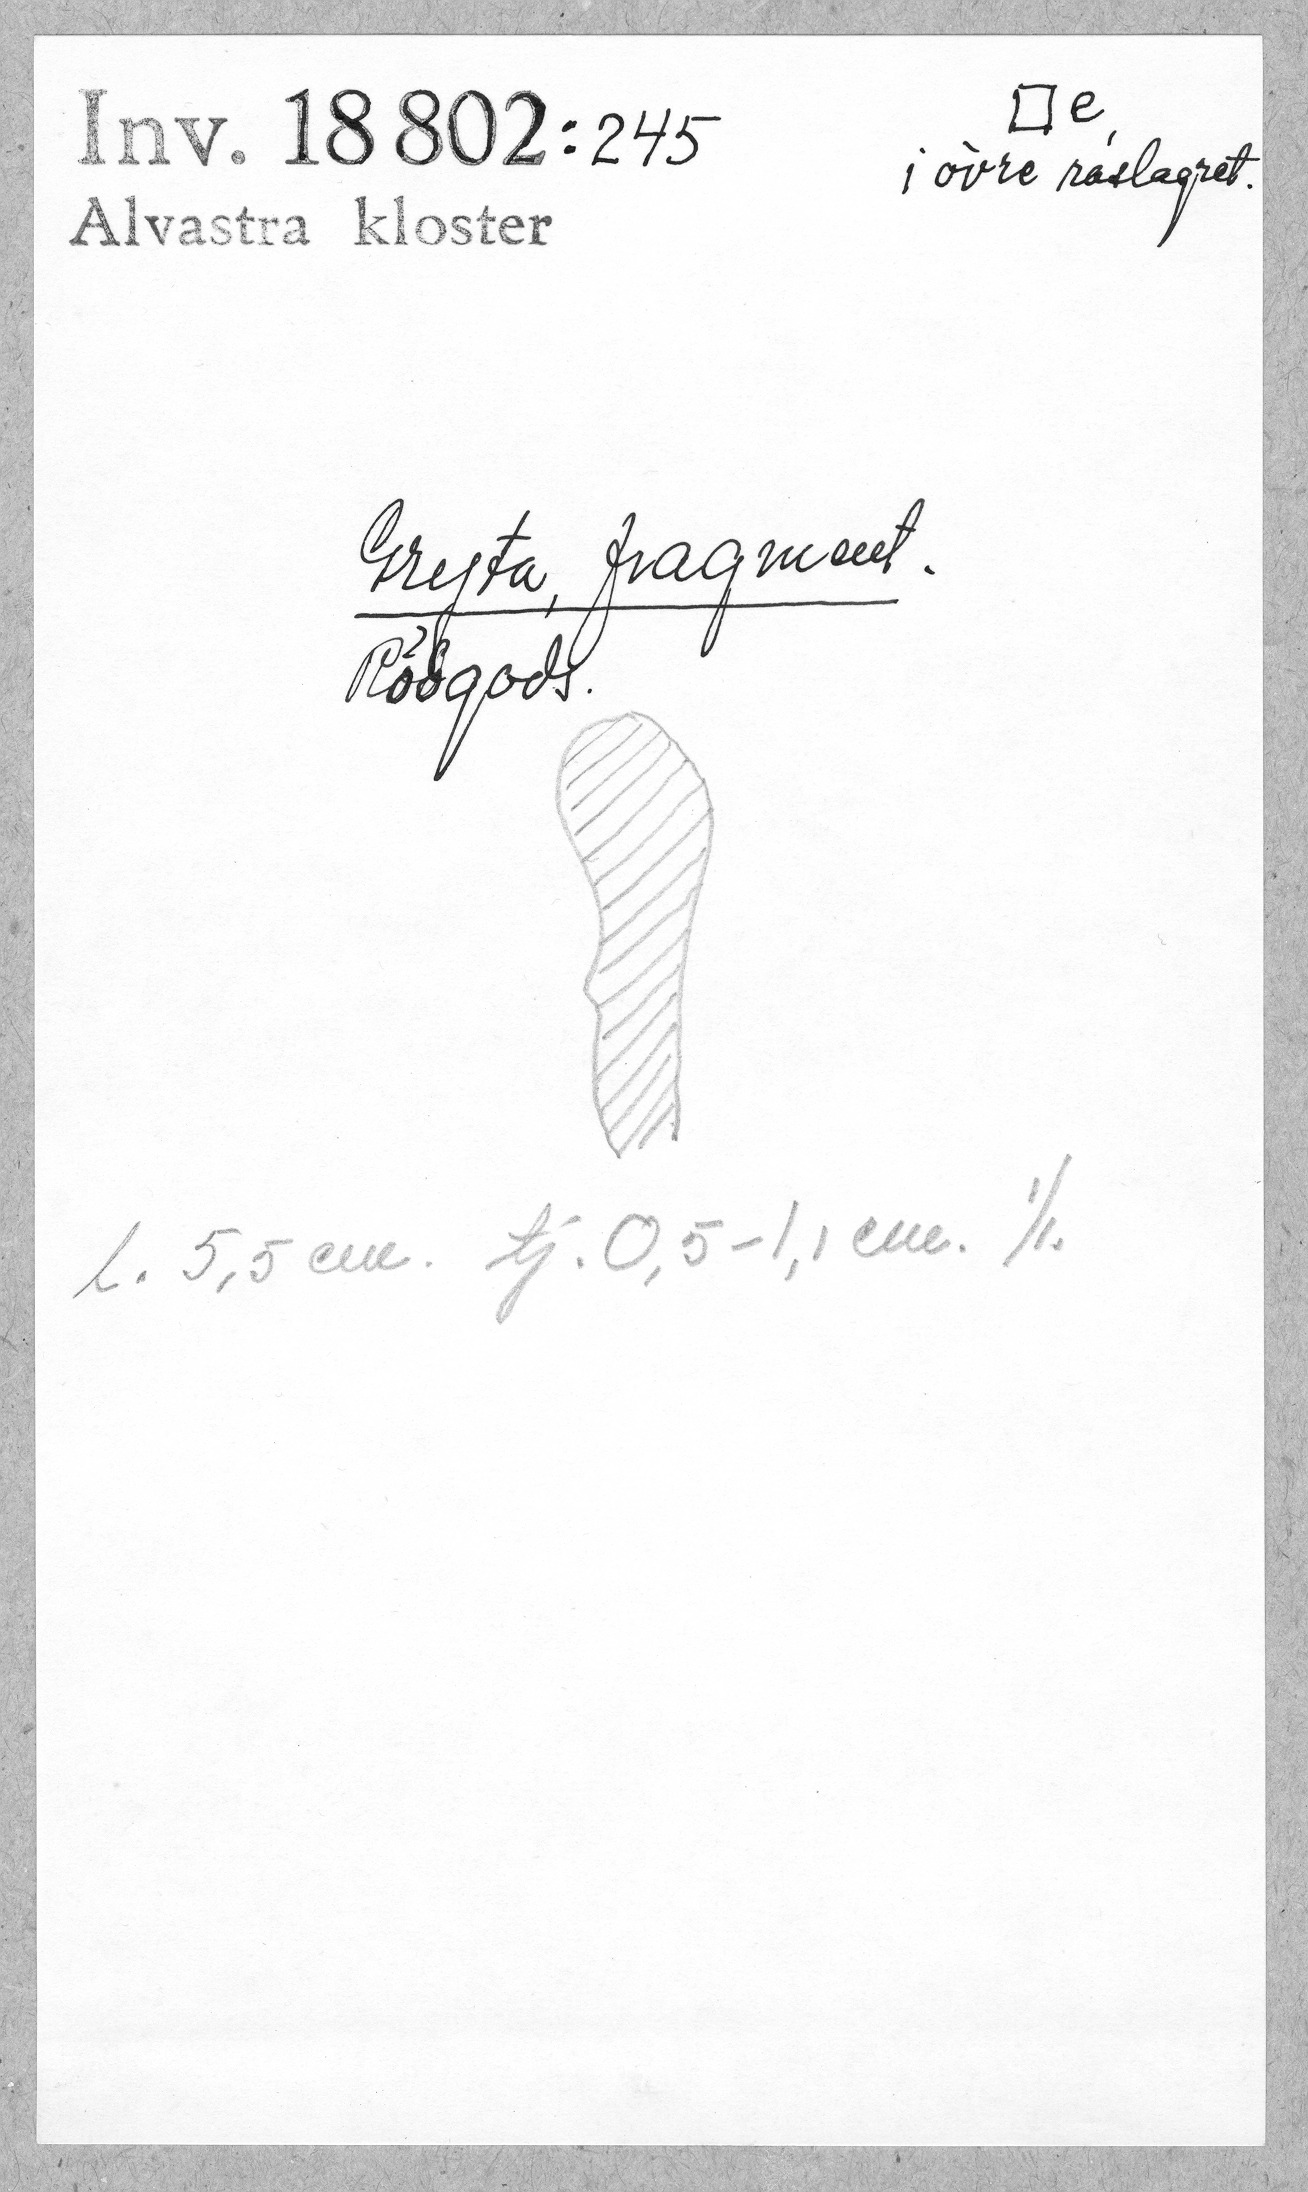 Inv. 18 802:245
Alvastra kloster
□ e,
i övre raslagret.
Gryta, fragment.
Rödgods.
l. 5,5 cm. tj. 0,5-1,1 cm. 1/1.